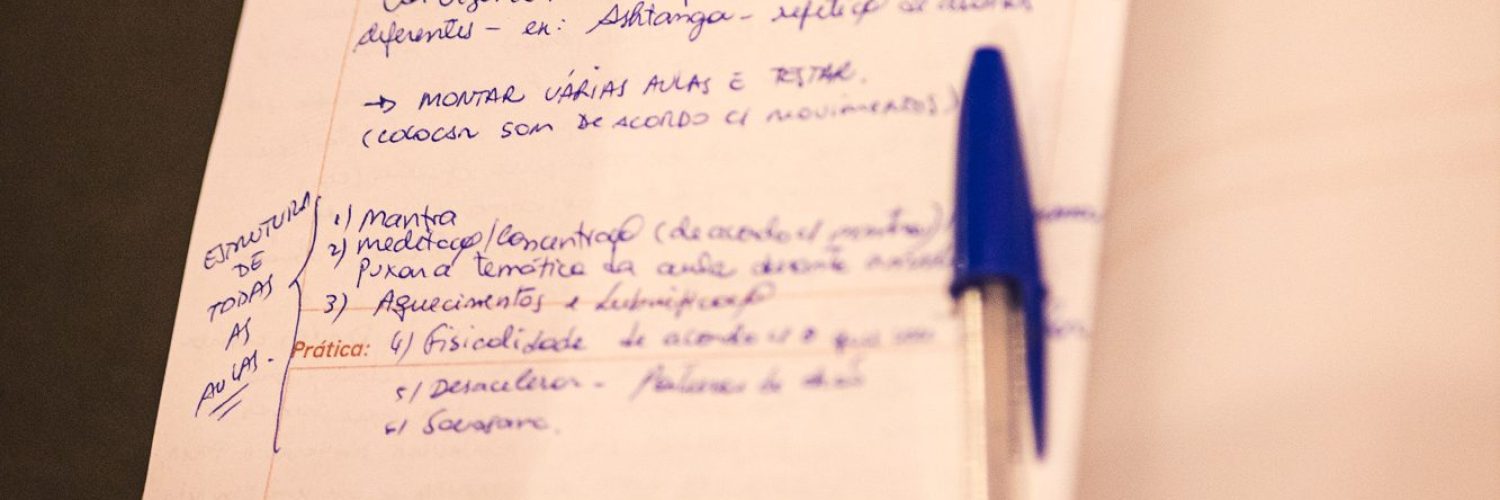 diferentes - ex: Ashtanga - repetição de
→ MONTAR VÁRIAS AULAS E TESTAR.
(COLOCAR SOM DE ACORDO C/ MOVIMENTOS)
ESTRUTURA
DE
TODAS
AS
AULAS.
1) Mantra
2) meditação/Concentração (de acordo c/ mantra)
puxar a temática da aula durante
3) Aquecimentos e Lubrificação
Prática: 4) fisicalidade de acordo c/ o que
5) Desacelerar -
6) Savasana.